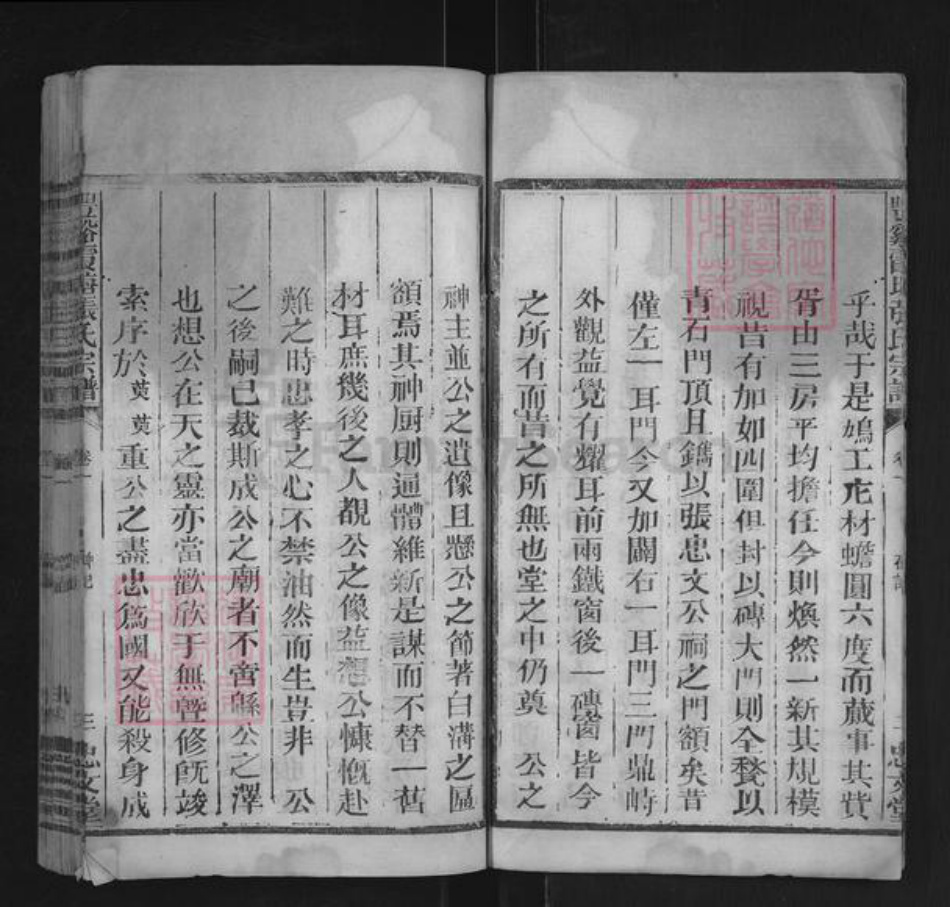 乎哉于是鳩工庀材蟾圓六度而蕆事其費
胥由三房平均擔任今則煥然一新其規模
視昔有加如四圍俱封以磚大門則全甃以
青石門頂且鐫以張忠文公祠之門額矣昔
僅左一耳門今又加闢右一耳門三門鼎峙
外觀益覺有耀耳前兩鐵窗後一磚窗皆今
之所有而昔之所無也堂之中仍奠 公之
神主並公之遺像且懸公之節著白溝之區
額焉其神厨則通體維新是謀而不替一舊
材耳庶幾後之人覩公之像益想公慷慨赴
難之時忠孝之心不禁油然而生豈非 公
之後嗣已裁斯成公之廟者不啻緜公之澤
也想公在天之靈亦當歡欣于無暨修旣竣
索序於英英重公之盡忠爲國又能殺身成
豐谿 張氏宗譜 卷一 三 忠文堂